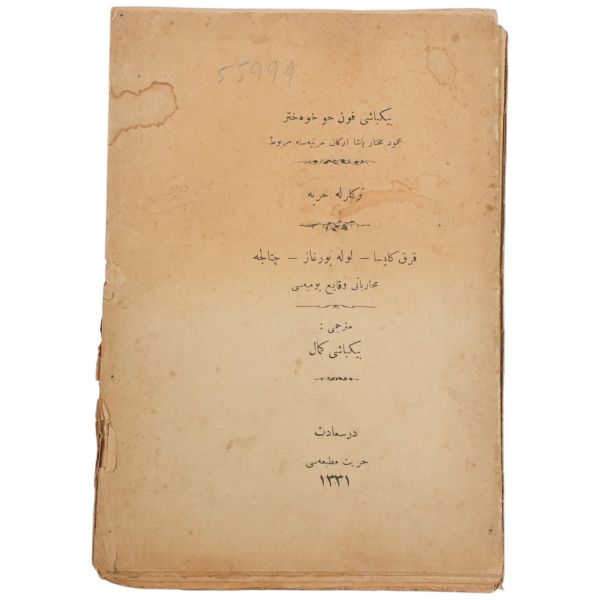 55994
بیکباشی فون حوخوه‌ختر
محمود مختار پاشا ارکان حربیه‌سنه مربوط
ترکلرله حربه
قرق کلیسا – لوله بورغاز – چتالجه
محارباتی وقایع یومیه‌سی
مترجمی :
بیکباشی کمال
درسعادت
حریت مطبعه‌سی
١٣٣١